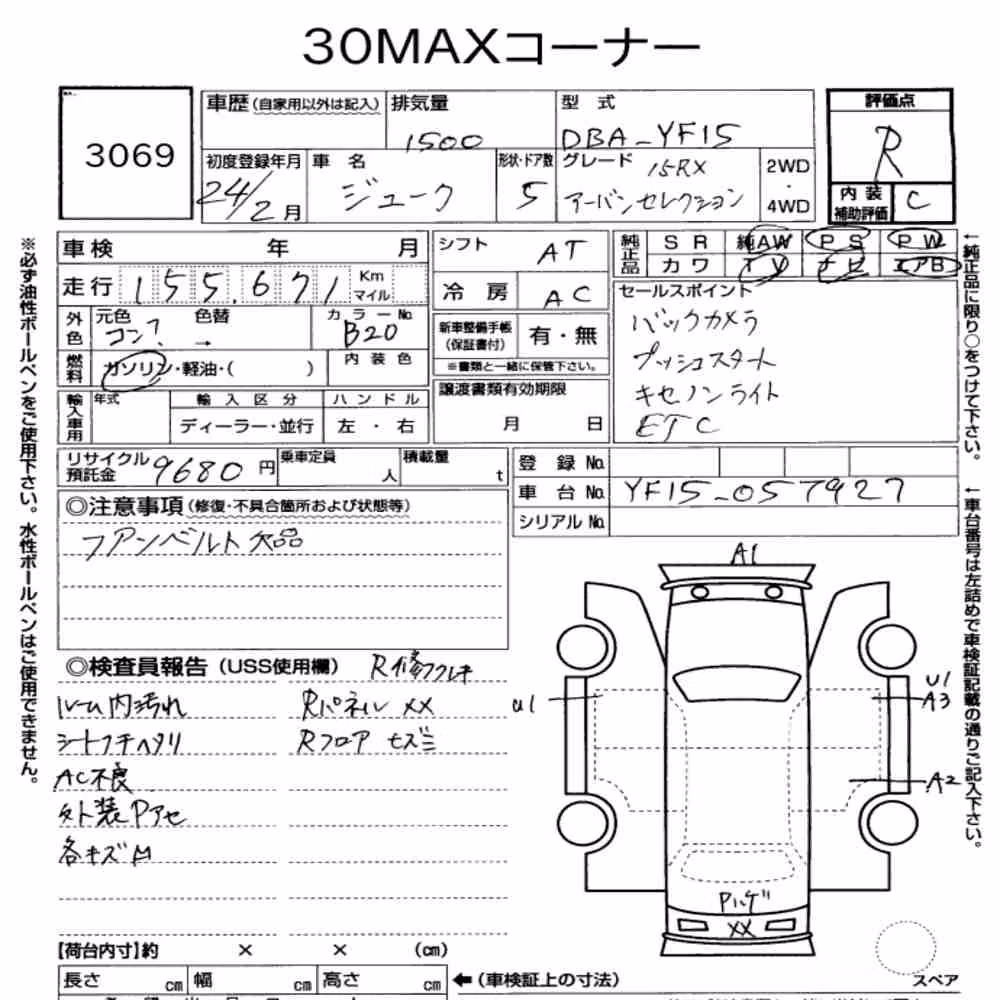 30MAXコーナー
3069
車歴(自家用以外は記入)
排気量
1500
型 式
DBA-YF15
評価点
R
初度登録年月
24/2月
車 名
ジューク
形状・ドア数
5
グレード
15RX
アーバンセレクション
2WD
・
4WD
内 装
補助評価
C
車 検 年 月
シフト
AT
純正品
S R 純AW P S P W
カ ワ T V ナ ビ エアB
走 行 155,671 Km
マイル
冷 房
AC
セールスポイント
バックカメラ
プッシュスタート
キセノンライト
ETC
外色
元色
コン?
色替
→
カ ラ ー No.
B20
新車整備手帳
(保証書付)
有・無
※書類と一緒に保管下さい。
燃料
ガソリン・軽油・( )
内 装 色
譲渡書類有効期限
月 日
輸入車用
年式
輸 入 区 分
ハ ン ド ル
ディーラー・並行
左 ・ 右
リサイクル
預託金
9680円
乗車定員
人
積載量
t
登 録 No.
車 台 No.
YF15-057927
シリアル No.
◎注意事項(修復・不具合箇所および状態等)
フアンベルト欠品
◎検査員報告(USS使用欄)
R修フクレキ
ルーム内汚れ
シートフチヘタリ
AC不良
外装Pアセ
各キズM
Rパネル XX
Rフロア セズミ
A1
U1
U1
A3
A2
Pハゲ
XX
スペア
【荷台内寸】約 × × (cm)
長さ cm
幅 cm
高さ cm
←(車検証上の寸法)
※必ず油性ボールペンをご使用下さい。水性ボールペンはご使用できません。
←純正品に限り○をつけて下さい。
←車台番号は左詰めで車検証記載の通りご記入下さい。